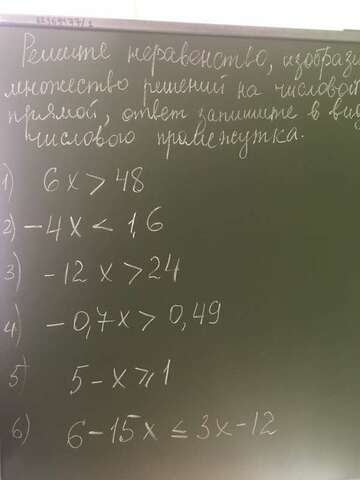 Решите неравенство, изобрази
множество решений на числовой
прямой, ответ запишите в вид
числового промежутка.
1) 6x > 48
2) -4x < 1,6
3) -12x > 24
4) -0,7x > 0,49
5) 5-x ⩾ 1
6) 6-15x ≤ 3x-12